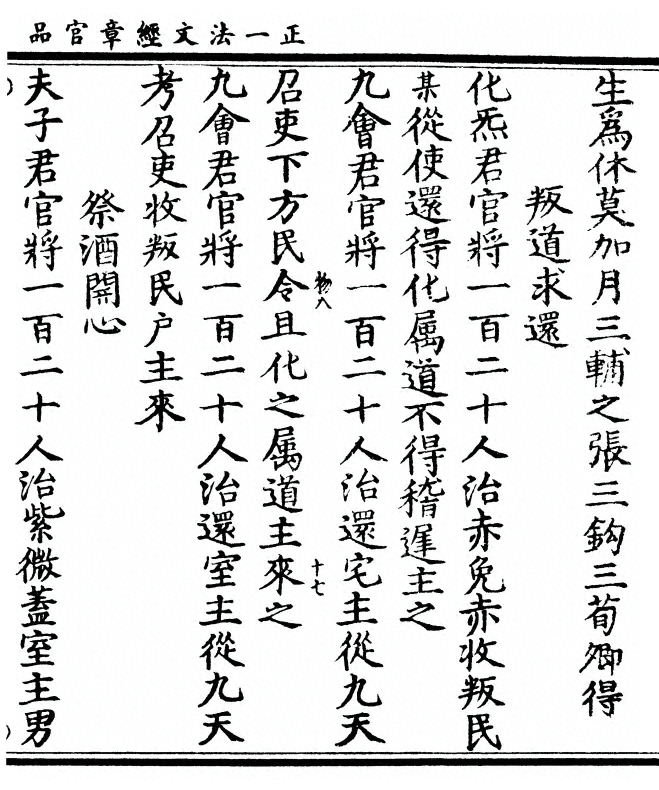 正一法文經章官品
生爲休莫加月三輔之張三鈎三荀卿得
叛道求還
化炁君官將一百二十人治赤兔赤收叛民
某從使還得化属道不得稽遲主之
九會君官將一百二十人治還宅主從九天
召吏下方民令且化之属道主來之
物八
十七
九會君官將一百二十人治還室主從九天
考召吏收叛民户主來
祭酒開心
夫子君官將一百二十人治紫微蓋室主男